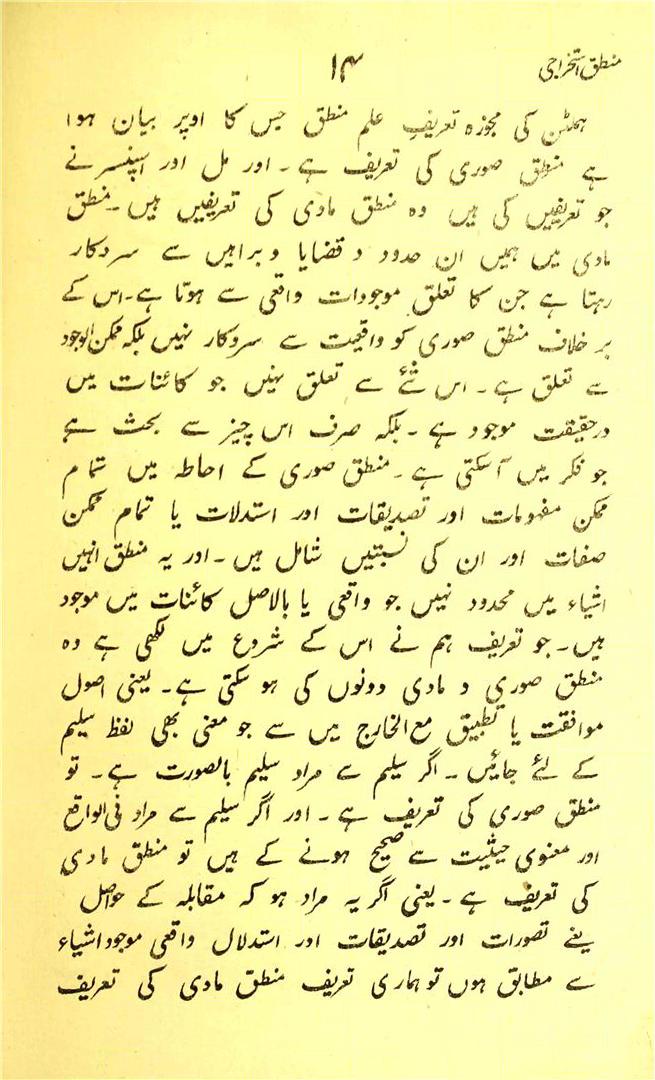 منطق استخراجی
۱۴
ہملٹن کی مجوزہ تعریفِ علم منطق جس کا اوپر بیان ہوا
ہے منطق صوری کی تعریف ہے۔ اور مل اور اسپنسر نے
جو تعریفیں کی ہیں وہ منطق مادی کی تعریفیں ہیں۔ منطق
مادی میں ہمیں ان حدود و قضایا و براہیں سے سروکار
رہتا ہے جن کا تعلق موجودات واقعی سے ہوتا ہے۔ اس کے
برخلاف منطق صوری کو واقعیت سے سروکار نہیں بلکہ ممکن الوجود
سے تعلق ہے۔ اس شئے سے تعلق نہیں جو کائنات میں
درحقیقت موجود ہے۔ بلکہ صرف اس چیز سے بحث ہے
جو فکر میں آسکتی ہے۔ منطق صوری کے احاطہ میں تمام
ممکن مفہومات اور تصدیقات اور استدلات یا تمام ممکن
صفات اور ان کی نسبتیں شامل ہیں۔ اور یہ منطق انہیں
اشیاء میں محدود نہیں جو واقعی یا بالاصل کائنات میں موجود
ہیں۔ جو تعریف ہم نے اس کے شروع میں لکھی ہے وہ
منطق صوری و مادی دونوں کی ہو سکتی ہے۔ یعنی اصول
موافقت یا تطبیق مع الخارج میں سے جو معنی بھی لفظ سلیم
کے لئے جائیں۔ اگر سلیم سے مراد سلیم بالصورت ہے۔ تو
منطق صوری کی تعریف ہے۔ اور اگر سلیم سے مراد فی الواقع
اور معنوی حیثیت سے صحیح ہونے کے ہیں تو منطق مادی
کی تعریف ہے۔ یعنی اگر یہ مراد ہو کہ مقابلہ کے حواصل
یعنے تصورات اور تصدیقات اور استدلال واقعی موجود اشیاء
سے مطابق ہوں تو ہماری تعریف منطق مادی کی تعریف